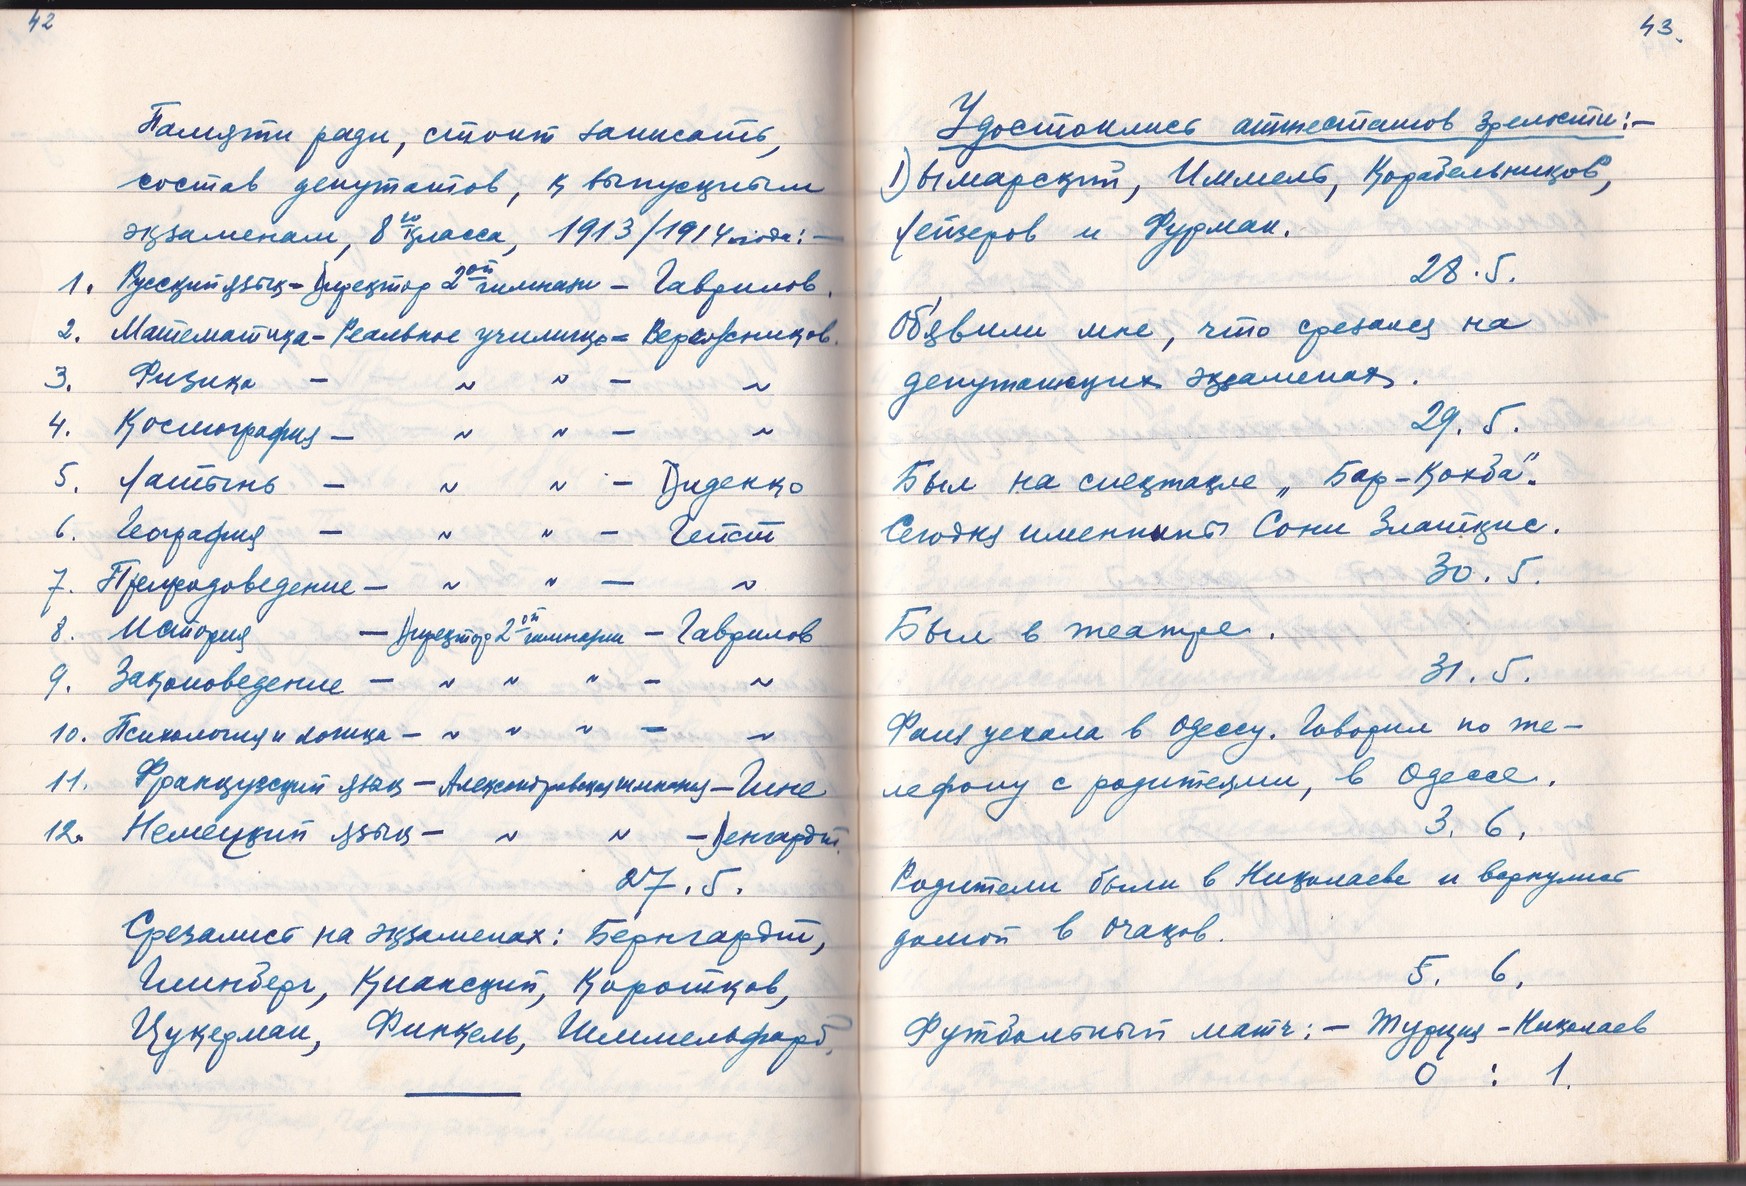 42
Памяти ради, стоит записать,
состав депутатов, к выпускным
экзаменам, 8го класса, 1913/1914 года: —
1. Русский язык - Директор 2ой гимназии - Гаврилов.
2. Математика - Реальное училище =
3. Физика - ~ ~ - ~
4. Космография - ~ ~ - ~
5. Латынь - ~ ~ - Диденко
6. География - ~ ~ - Гейст
7. Природоведение - ~ ~ - ~
8. История - Директор 2ой гимназии - Гаврилов
9. Законоведение - ~ ~ ~ - ~
10. Психология и логика - ~ ~ ~ - ~
11. Французский язык - Александровская гимназия - Гине
12. Немецкий язык - ~ ~ - Денгардт.
27. 5.
Срезались на экзаменах: Бернгардт,
Гринберг, Кианский, Коротков,
Цукерман, Финкель, Шиммельфарб.
43.
Удостоились аттестатов зрелости: —
Дымарский, Иммель, Корабельников,
Лейзеров и Фурман.
28. 5.
Об'явили мне, что срезался на
депутатских экзаменах.
29. 5.
Был на спектакле „Бар-Кохба".
Сегодня именины Сони Златкис.
30. 5.
Был в театре.
31. 5.
Фаня уехала в Одессу. Говорил по те-
лефону с родителями, в Одессе.
3. 6.
Родители были в Николаеве и вернулись
домой в Очаков.
5. 6.
Футбольный матч: — Турция - Николаев
0 : 1.